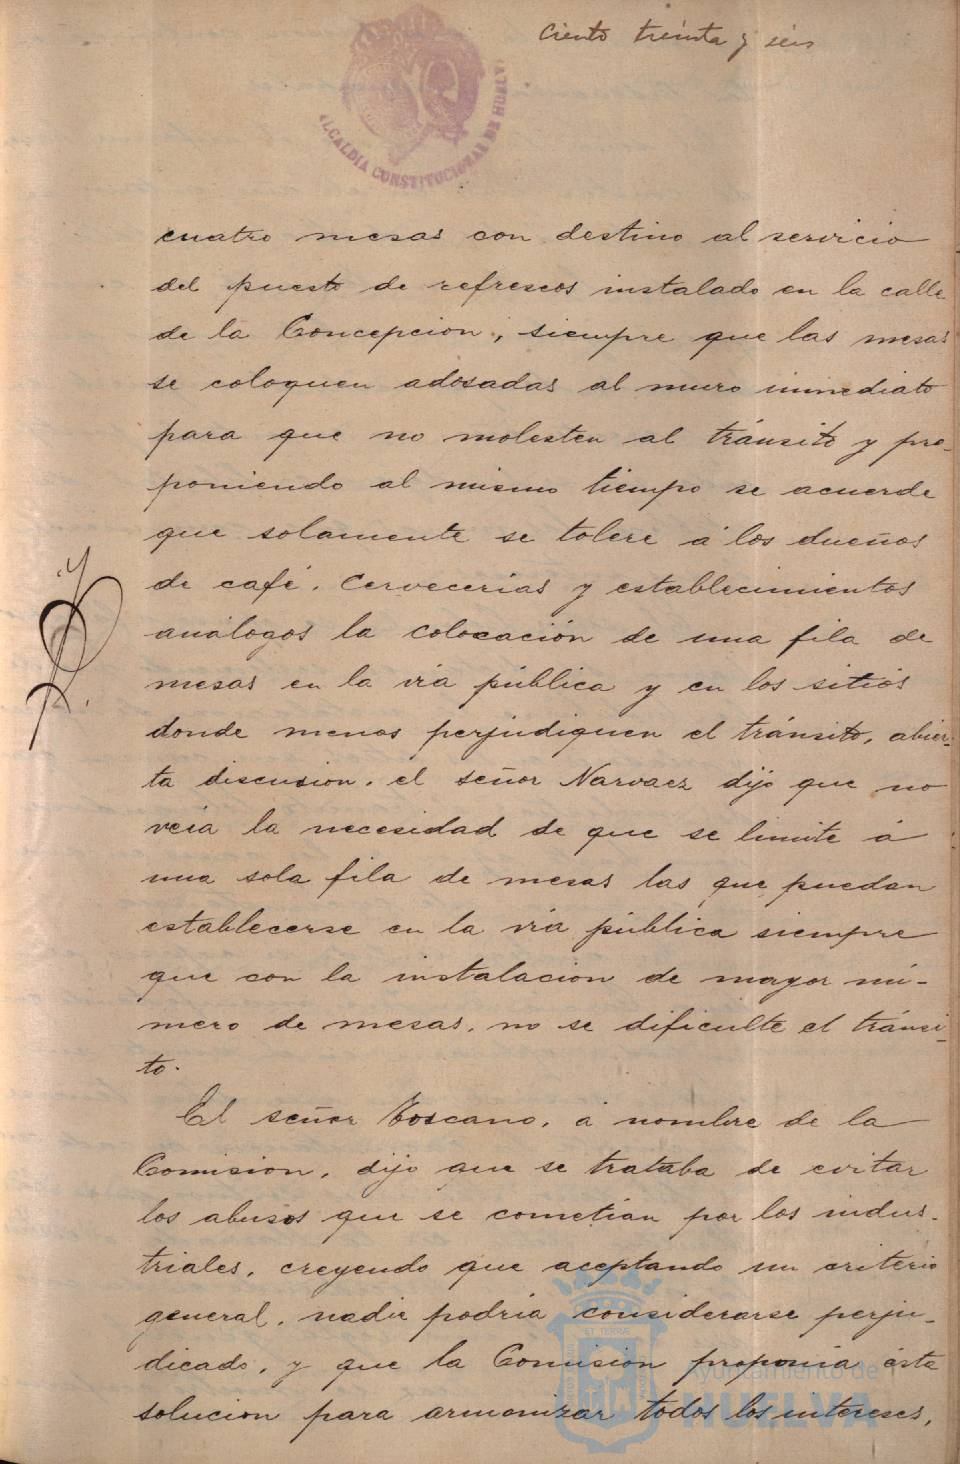 Ciento treinta y seis
ALCALDÍA CONSTITUCIONAL DE HUELVA
cuatro mesas con destino al servicio
del puesto de refrescos instalado en la calle
de la Concepcion, siempre que las mesas
se coloquen adosadas al muro inmediato
para que no molesten al tránsito y pro-
poniendo al mismo tiempo se acuerde
que solamente se tolere á los dueños
de café, cervecerias y establecimientos
análogos la colocación de una fila de
mesas en la vía pública y en los sitios
donde menos perjudiquen el tránsito, abier-
ta discusion, el señor Narvaez dijo que no
veía la necesidad de que se limite á
una sola fila de mesas las que puedan
establecerse en la vía pública siempre
que con la instalacion de mayor nú-
mero de mesas, no se dificulte el tránsi-
to.
El señor Toscano, á nombre de la
Comision, dijo que se trataba de evitar
los abusos que se cometian por los indus-
triales, creyendo que aceptando un criterio
general, nadie podría considerarse perju-
dicado, y que la Comisión proponía ésta
solucion para armonizar todos los intereses,
Ayuntamiento de
HUELVA